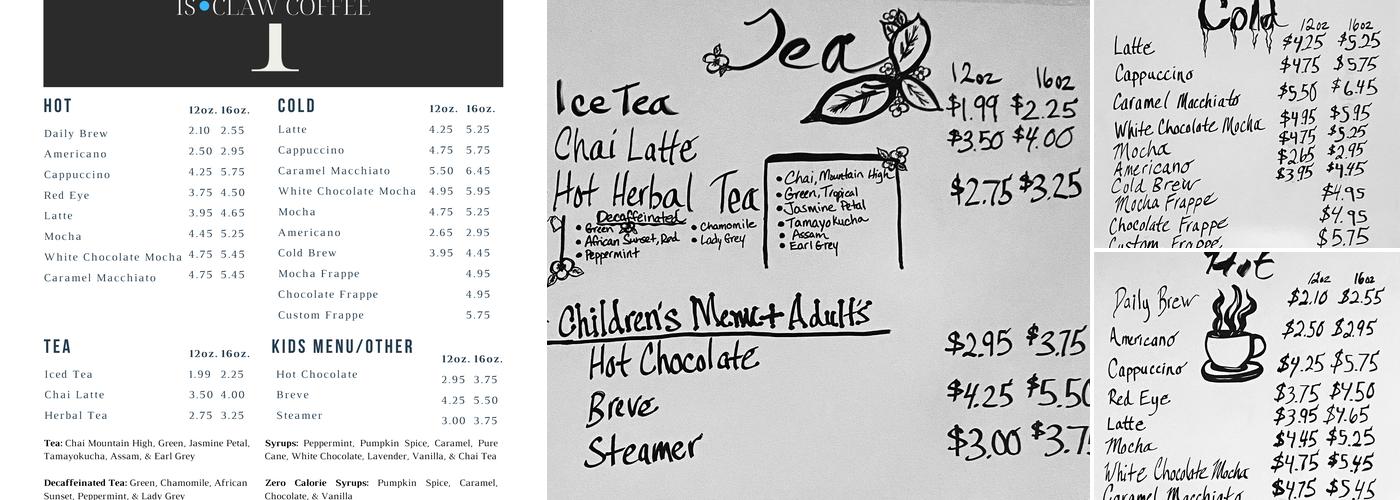 IS•CLAW COFFEE
1
HOT 12oz. 16oz.
Daily Brew 2.10 2.55
Americano 2.50 2.95
Cappuccino 4.25 5.75
Red Eye 3.75 4.50
Latte 3.95 4.65
Mocha 4.45 5.25
White Chocolate Mocha 4.75 5.45
Caramel Macchiato 4.75 5.45
COLD 12oz. 16oz.
Latte 4.25 5.25
Cappuccino 4.75 5.75
Caramel Macchiato 5.50 6.45
White Chocolate Mocha 4.95 5.95
Mocha 4.75 5.25
Americano 2.65 2.95
Cold Brew 3.95 4.45
Mocha Frappe 4.95
Chocolate Frappe 4.95
Custom Frappe 5.75
TEA 12oz. 16oz.
Iced Tea 1.99 2.25
Chai Latte 3.50 4.00
Herbal Tea 2.75 3.25
KIDS MENU/OTHER 12oz. 16oz.
Hot Chocolate 2.95 3.75
Breve 4.25 5.50
Steamer 3.00 3.75
Tea: Chai Mountain High, Green, Jasmine Petal,
Tamayokucha, Assam, & Earl Grey
Decaffeinated Tea: Green, Chamomile, African
Sunset, Peppermint, & Lady Grey
Syrups: Peppermint, Pumpkin Spice, Caramel, Pure
Cane, White Chocolate, Lavender, Vanilla, & Chai Tea
Zero Calorie Syrups: Pumpkin Spice, Caramel,
Chocolate, & Vanilla
Tea
12oz 16oz
Ice Tea $1.99 $2.25
Chai Latte $3.50 $4.00
Hot Herbal Tea $2.75 $3.25
• Chai, Mountain High
• Green, Tropical
• Jasmine Petal
• Tamayokucha
• Assam
• Earl Grey
Decaffeinated
• Green • Chamomile
• African Sunset, Red • Lady Grey
• Peppermint
Children's Menu + Adult's
Hot Chocolate $2.95 $3.75
Breve $4.25 $5.50
Steamer $3.00
Cold
12oz 16oz
Latte $4.25 $5.25
Cappuccino $4.75 $5.75
Caramel Macchiato $5.50 $6.45
White Chocolate Mocha $4.95 $5.95
Mocha $4.75 $5.25
Americano $2.65 $2.95
Cold Brew $3.95 $4.45
Mocha Frappe $4.95
Chocolate Frappe $4.95
Custom Frappe $5.75
Hot
12oz 16oz
Daily Brew $2.10 $2.55
Americano $2.50 $2.95
Cappuccino $4.25 $5.75
Red Eye $3.75 $4.50
Latte $3.95 $4.65
Mocha $4.45 $5.25
White Chocolate Mocha $4.75 $5.45
Caramel Macchiato $4.75 $5.45